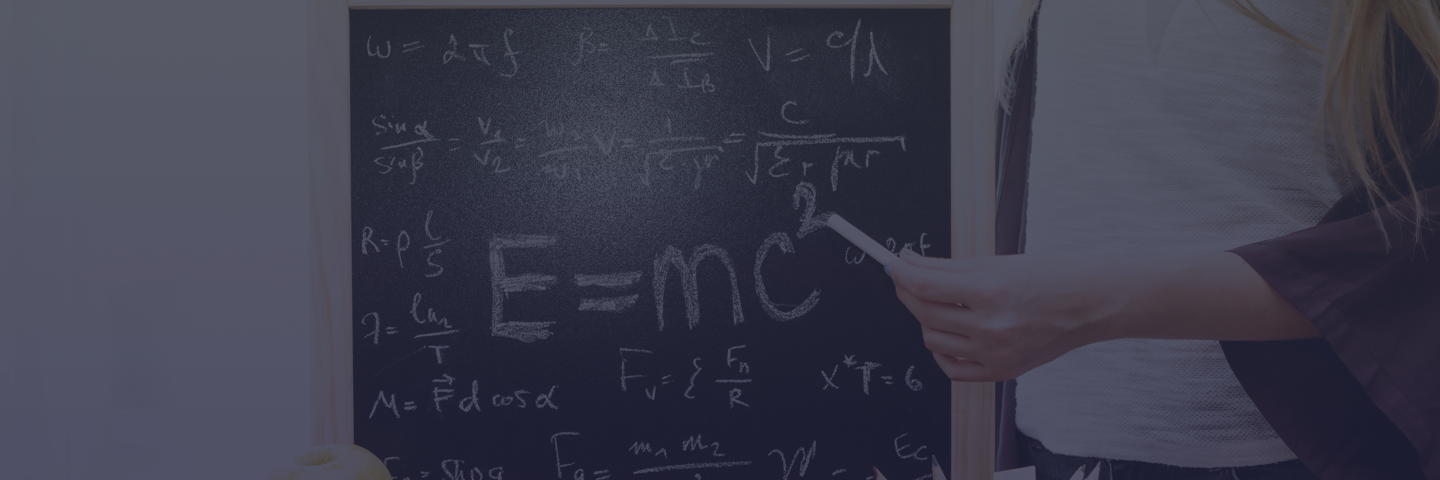 ω = 2πf β = ΔI_C / ΔI_B V = c/λ
sin α / sin β = v₁ / v₂ = V = 1 / √ε·μ = C / √ε r μ r
R = ρ l / S
E = mc² ω 2πf
λ = ln₂ / T
F_v = { F_n / R X*T = 6
M = F⃗ d cos α
F_g = m₁ m₂ E_C